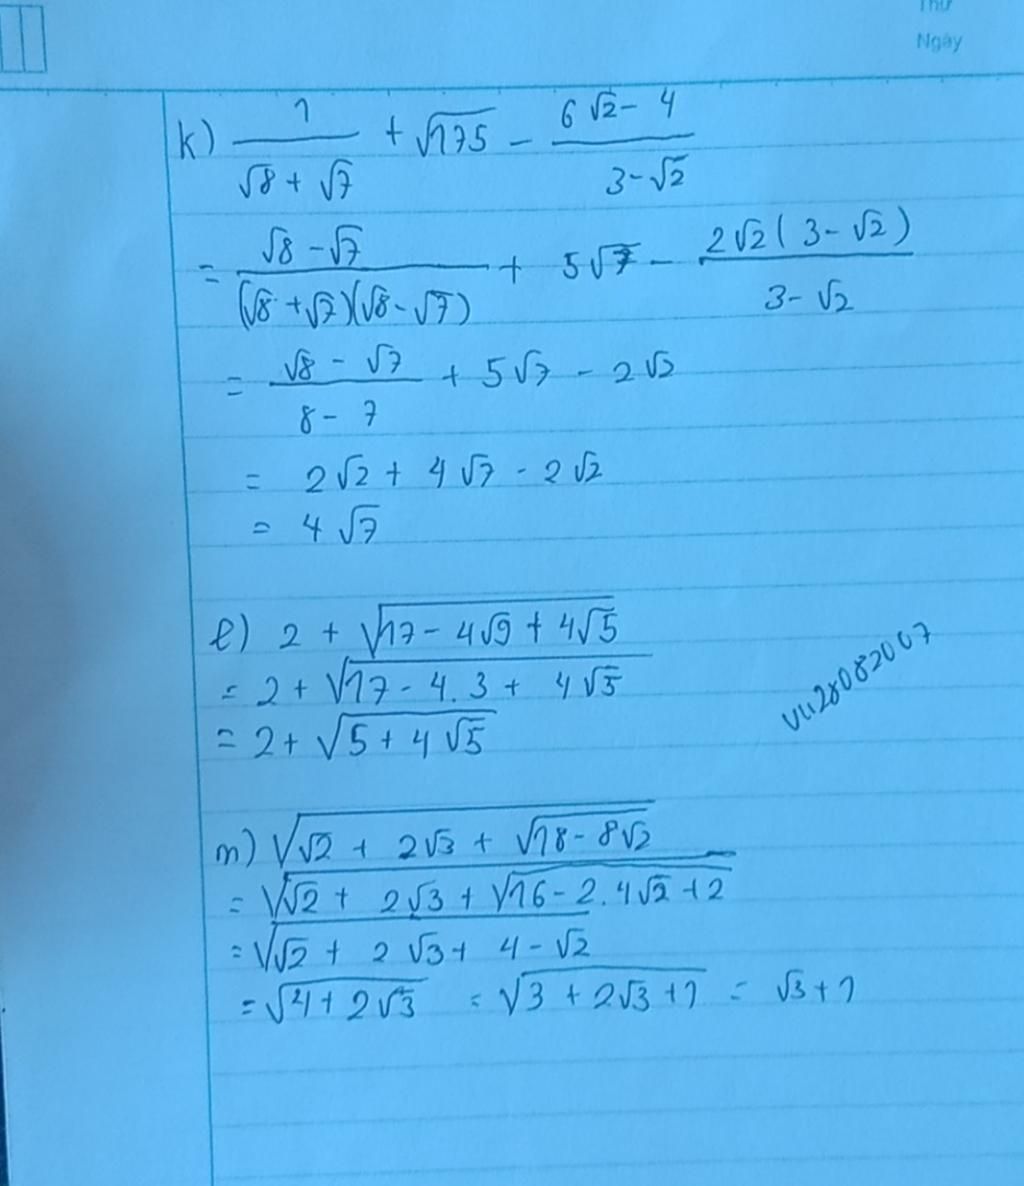 Thứ
Ngày
k) 1/(√8 + √7) + √175 - (6√2 - 4)/(3 - √2)
= (√8 - √7)/((√8 + √7)(√8 - √7)) + 5√7 - (2√2(3 - √2))/(3 - √2)
= (√8 - √7)/(8 - 7) + 5√7 - 2√2
= 2√2 + 4√7 - 2√2
= 4√7
l) 2 + √(17 - 4√9 + 4√5)
= 2 + √(17 - 4.3 + 4√5)
= 2 + √(5 + 4√5)
vu28082007
m) √(√2 + 2√3 + √(18 - 8√2))
= √(√2 + 2√3 + √(16 - 2.4√2 + 2))
= √(√2 + 2√3 + 4 - √2)
= √(4 + 2√3) = √(3 + 2√3 + 1) = √3 + 1